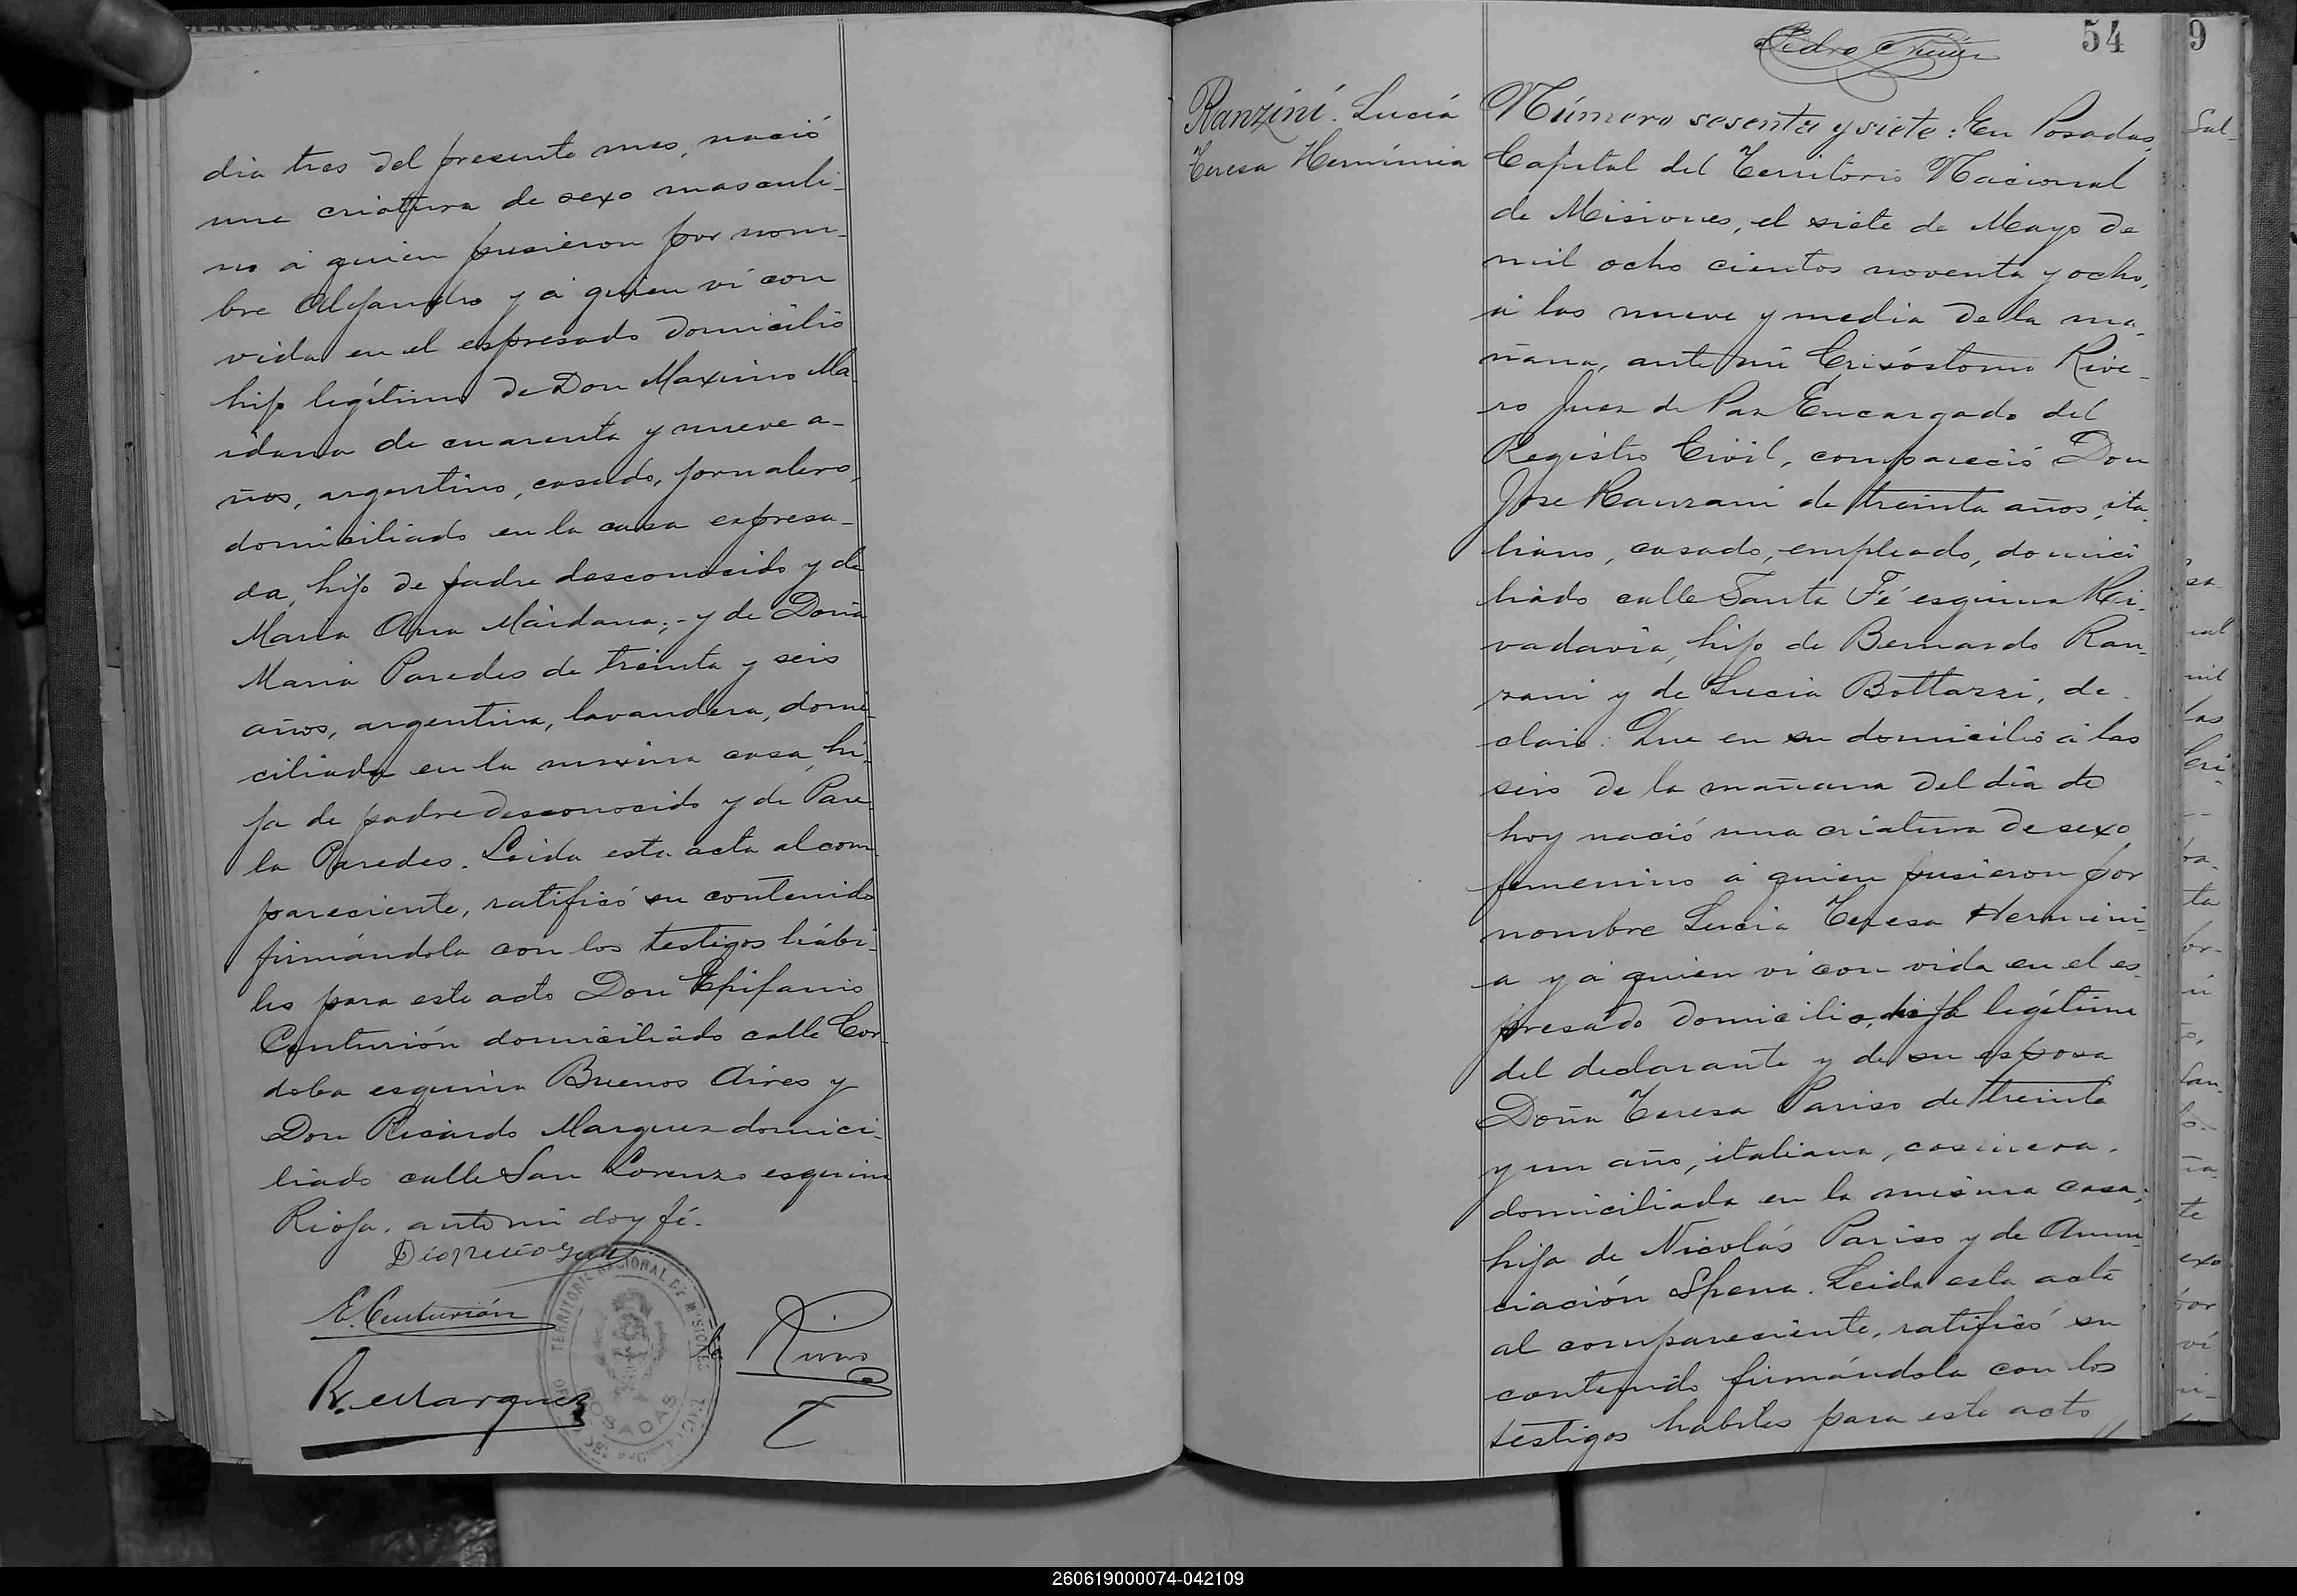 dia tres del presente mes, nació
una criatura de sexo masculi-
no á quien pusieron por nom-
bre Alejandro y á quien ví con
vida en el espresado domicilio
hijo legítimo de Don Maximo Ma-
idana de cuarenta y nueve a-
ños, argentino, casado, jornalero,
domiciliado en la casa expresa-
da, hijo de padre desconocido y de
Maria Ana Maidana; - y de Doña
Maria Paredes de treinta y seis
años, argentina, lavandera, domi-
ciliada en la misma casa, hi-
ja de padre desconocido y de
la Paredes. Leida esta acta al com-
pareciente, ratificó su contenido
firmándola con los testigos hábi-
les para este acto Don Epifanio
Centurión domiciliado calle Cor-
doba esquina Buenos Aires y
Don Ricardo Marquez domici-
liado calle San Lorenzo esquina
Rioja. ante mi doy fé.
E. Centurión
R. Marquez
TERRITORIO NACIONAL DE MISIONES
POSADAS
54
9
Pedro
Ranzini. Lucía
Teresa Hermínia
Número sesenta y siete: En Posadas,
Capital del Territorio Nacional
de Misiones, el siete de Mayo de
mil ocho cientos noventa y ocho,
á las nueve y media de la ma-
ñana, ante mi Crisóstomo Rive-
ro Juez de Paz Encargado del
Registro Civil, compareció Don
Jose Ranzani de treinta años, ita-
liano, casado, empleado, domici
liado calle Santa Fé esquina Ri-
vadavia, hijo de Bernardo Ran-
zani y de Lucia Bottazzi, de-
claró: Que en su domicilio á las
seis de la mañana del dia de
hoy nació una criatura de sexo
femenino á quien pusieron por
nombre Lucia Teresa Hermini-
a y á quien ví con vida en el es-
presado domicilio, hija legítima
del declarante y de su esposa
Doña Teresa Pariso de treinta
y un año, italiana, cosinera,
domiciliada en la misma casa;
hija de Nicolás Pariso y de Anun-
ciación Spena. Leida esta acta
al compareciente, ratificó su
contenido firmándola con los
testigos habiles para este acto //
260619000074-042109